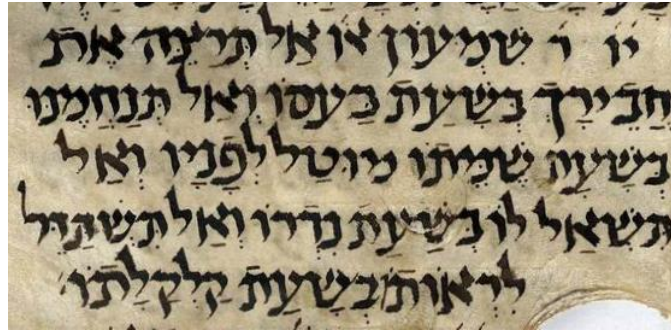 יו ר שמעון או אל תרצה את
חבירך בשעת כעסו ואל תנחמנו
בשעה שמיתו מוטל לפניו ואל
תשאל לו בשעת נדרו ואל תשתדל
לראותו בשעת קלקלתו